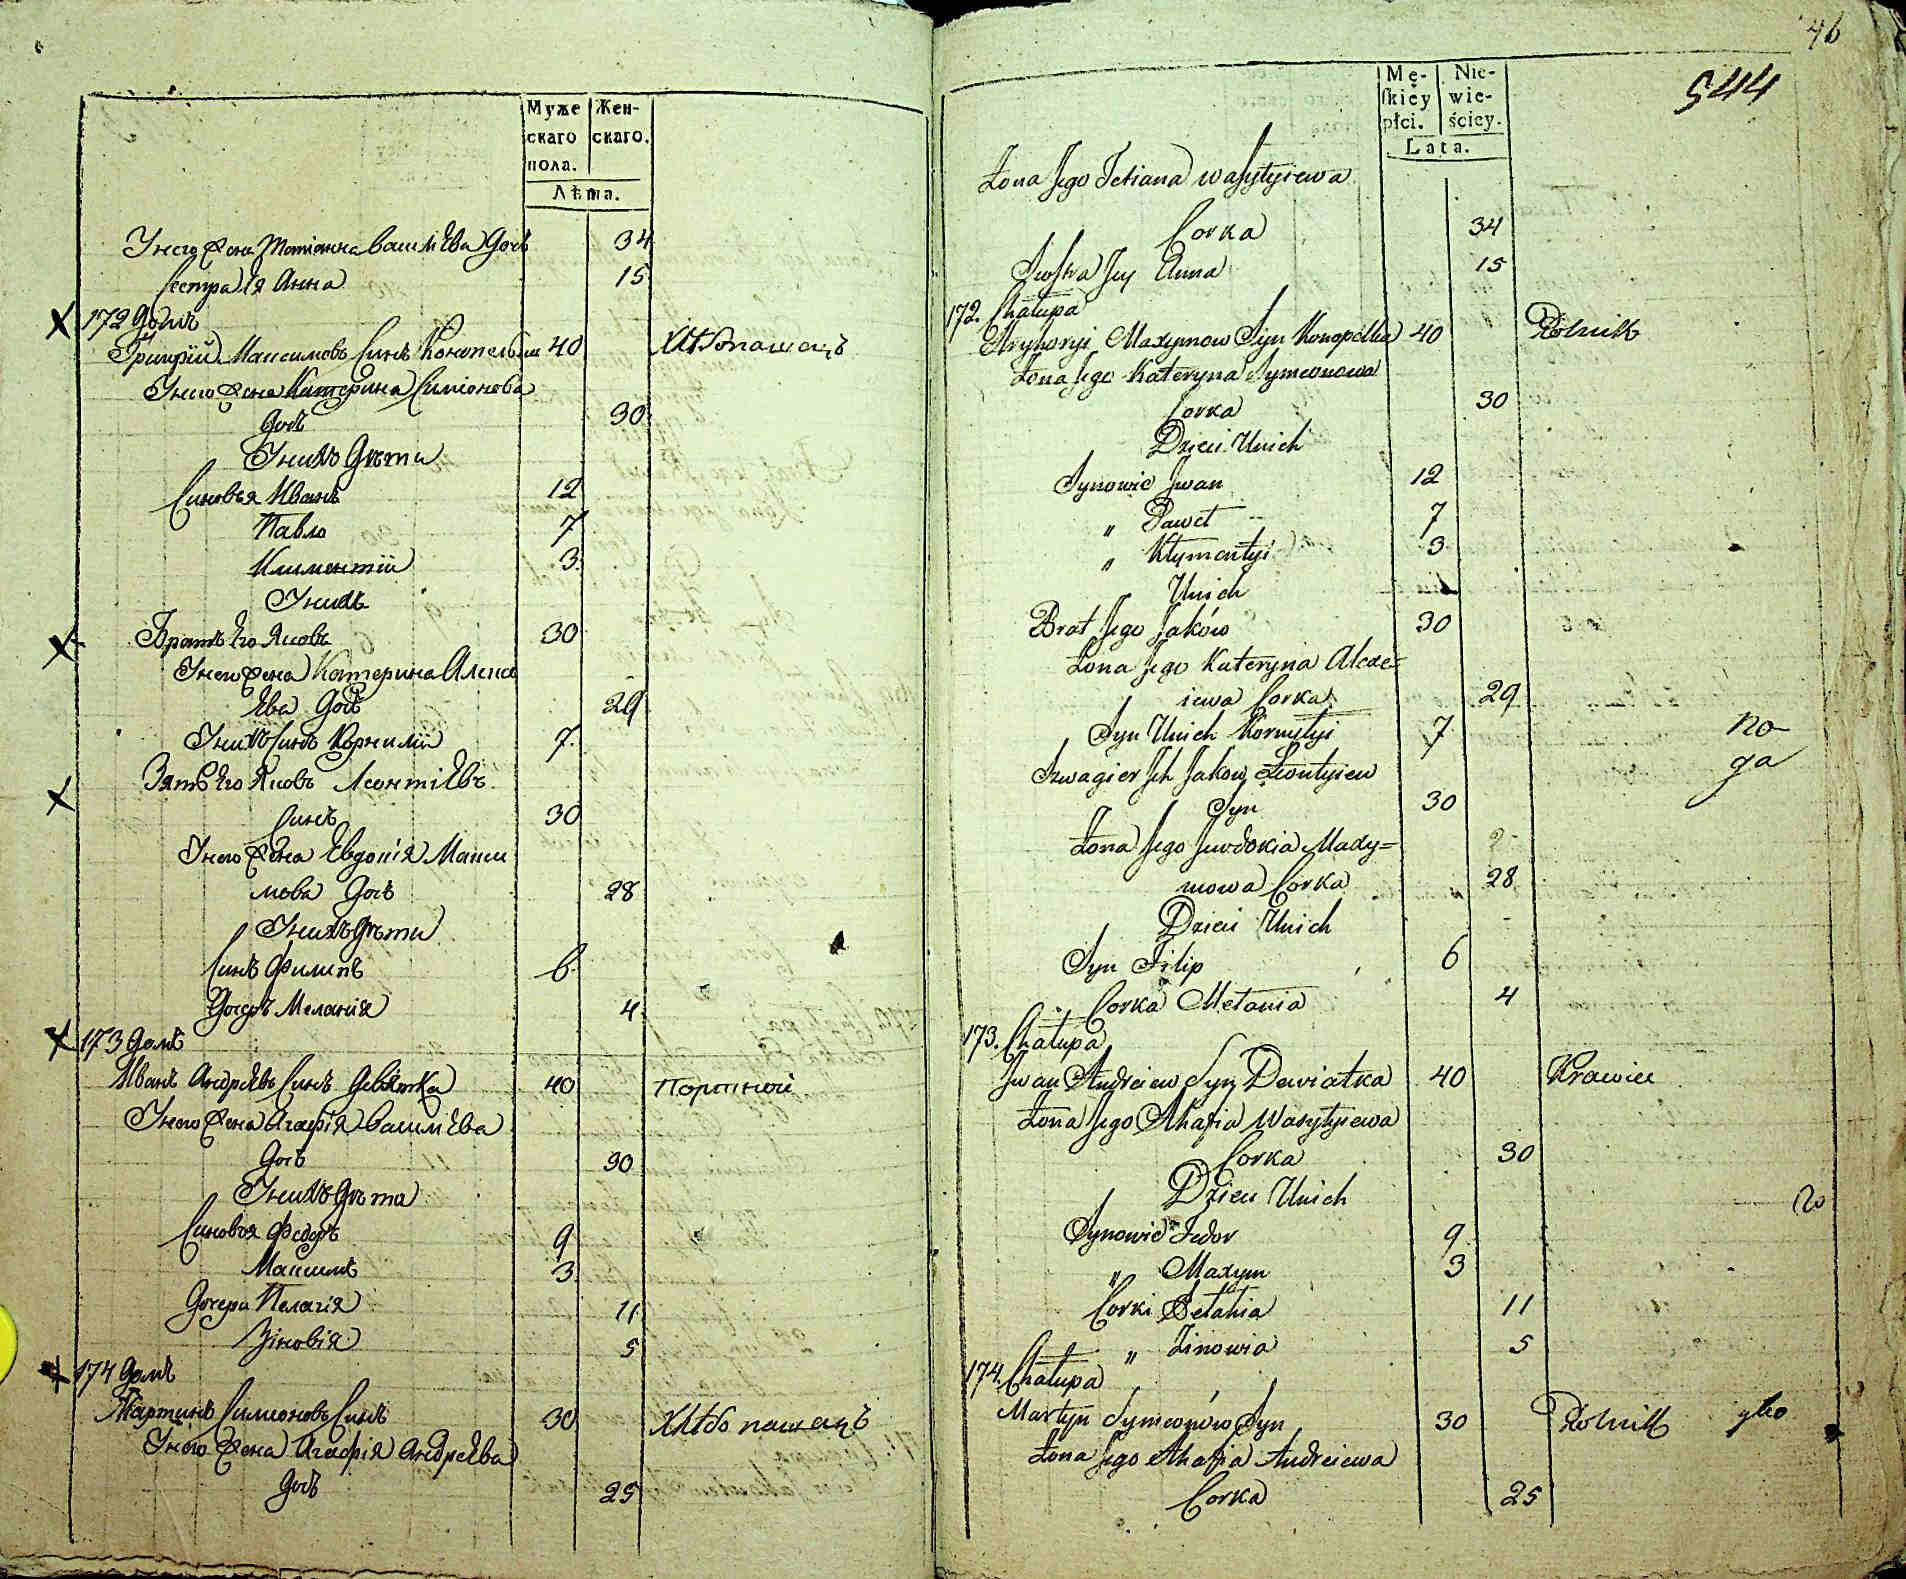 Муже
скаго
пола.
Жен-
скаго.
Лѣта.
Унего жена Татіанна Василѣва Дочь 34
Сестра Ея Анна 15
172 Домъ
Григорій Максимовъ Синъ Конопелька 40 Хлѣбопашецъ
Унего жена Катерина Симіонова
Дочь 30
Унихъ Дѣти
Синовья Иванъ 12
Павло 7
Климентій 3
Унихъ
Братъ Его Яковъ 30
Унего жена Катерина Алексѣ
Ева Дочь 29
Унихъ Синъ Корнилій 7
Зять Его Яковъ Леонтіевъ
Синъ 30
Унего жена Евдокія Макси
мова Дочь 28
Унихъ Дѣти
Синъ Филипъ 6
Дочерь Меланія 4
173 Домъ
Иванъ Андрѣевъ Синъ Девятка 40 Портной
Унего жена Агафія Василѣва
Дочь 30
Унихъ Дѣти
Синовья Федоръ 9
Максимъ 3
Дочери Пелагія 11
Зіновія 5
174 Домъ
Мартинъ Симіоновъ Синъ 30 Хлѣбопашецъ
Унего жена Агафія Андрѣева
Дочь 25
46
544
Mę-
skiéy
płci.
Nie-
wie-
ściey.
Lata.
Żona Jego Tetiana Wasylyiewa
Corka 34
Siostra Jey Anna 15
172. Chałupa
Hryhoryi Maxymow Syn Konopelka 40 Rolnik
Żona Jego Kateryna Symeonowa
Corka 30
Dzieci Unich
Synowie Iwan 12
" Paweł 7
" Kłymentyi 3
Unich
Brat Jego Jaków 30
Żona Jego Kateryna Alexe=
iewa Corka 29
Syn Unich Kornyłyi 7
Szwagier Ich Jakow Leontyiew
Syn 30
Żona Jego Jewdokia Maxy=
mowa Corka 28
Dzieci Unich
Syn Filip 6
Corka Mełania 4
173. Chałupa
Iwan Andreiew Syn Dewiatka 40 Krawiec
Żona Jego Ahafia Wasylyiewa
Corka 30
Dzieci Unich
Synowie Fedor 9
" Maxym 3
Corki Pełahia 11
" Zinowia 5
174. Chałupa
Martyn Symeonów Syn 30 Rolnik
Żona Jego Ahafia Andreiewa
Corka 25